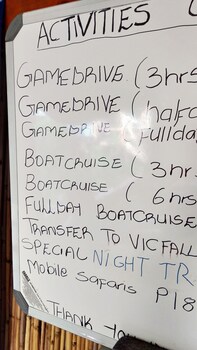 ACTIVITIES
GAMEDRIVE (3hrs
GAMEDRIVE (half
GAMEDRIVE (fullday
BOATCRUISE (3hr
BOATCRUISE ( 6hrs
FULLDAY BOATCRUISE
TRANSFER TO VICFALL
SPECIAL NIGHT TR
Mobile Safaris P18
THANK